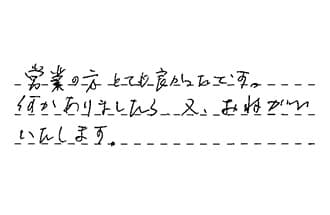 営業の方とても良かったです。
何かありましたら又、おねがい
いたします。